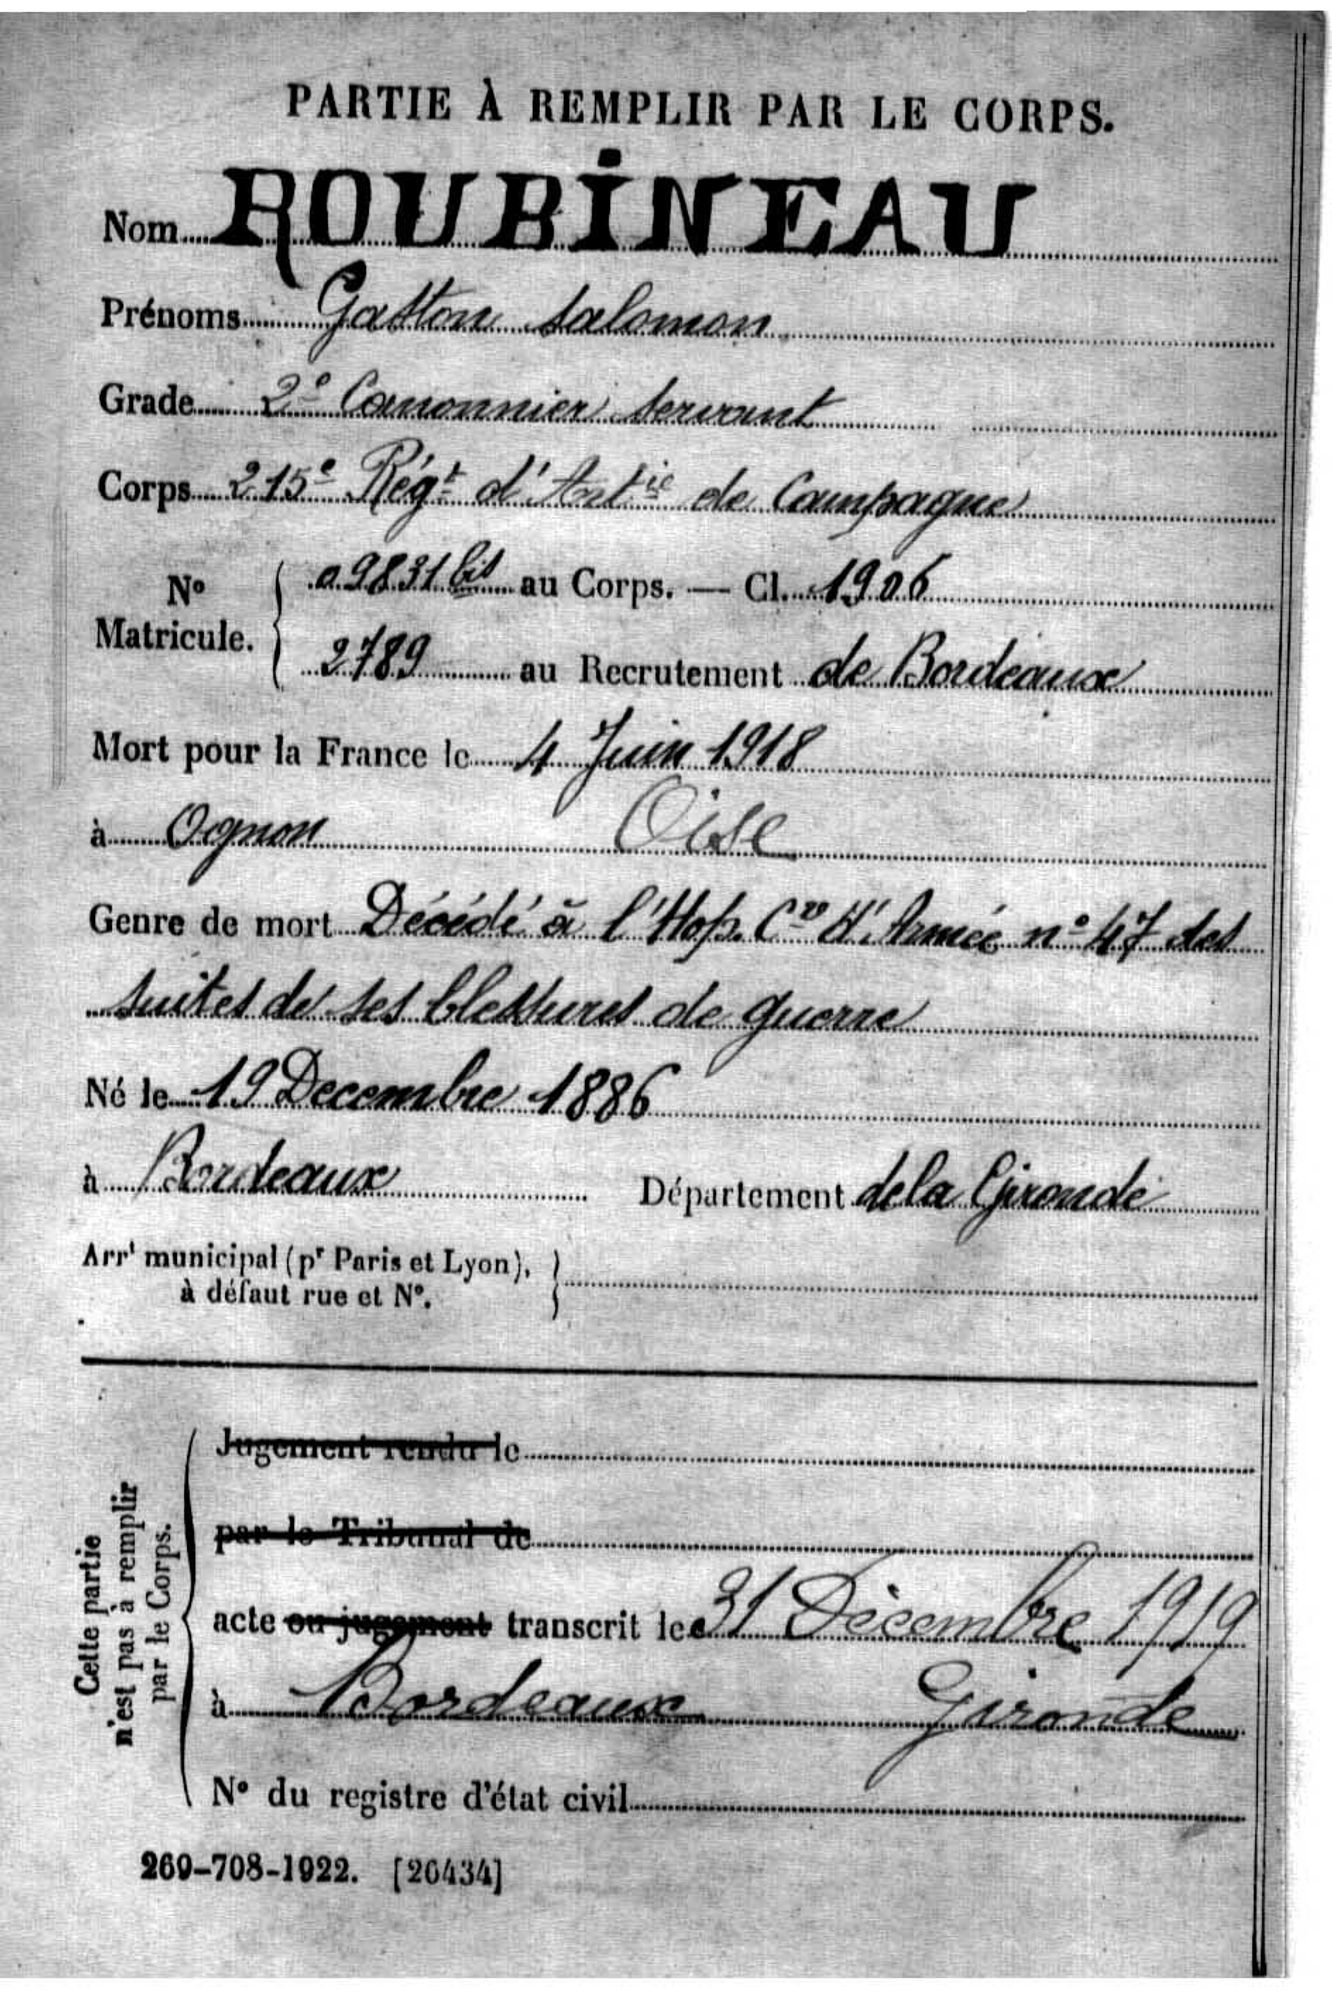 PARTIE À REMPLIR PAR LE CORPS.
Nom ROUBINEAU
Prénoms Gaston Salomon
Grade 2e Canonnier servant
Corps 215e Régt d'Artie de Campagne
No Matricule. { 09831 bis au Corps. — Cl. 1906
2789 au Recrutement de Bordeaux
Mort pour la France le 4 Juin 1918
à Ognon Oise
Genre de mort Décédé à l'Hop. Cre d'Armée no 47 des
suites de ses blessures de guerre
Né le 19 Decembre 1886
à Bordeaux Département de la Gironde
Arrt municipal (pr Paris et Lyon),
à défaut rue et No.
Cette partie
n'est pas à remplir
par le Corps.
Jugement rendu le
par le Tribunal de
acte ou jugement transcrit le 31 Décembre 1919
à Bordeaux Gironde
No du registre d'état civil
269-708-1922. [26434]